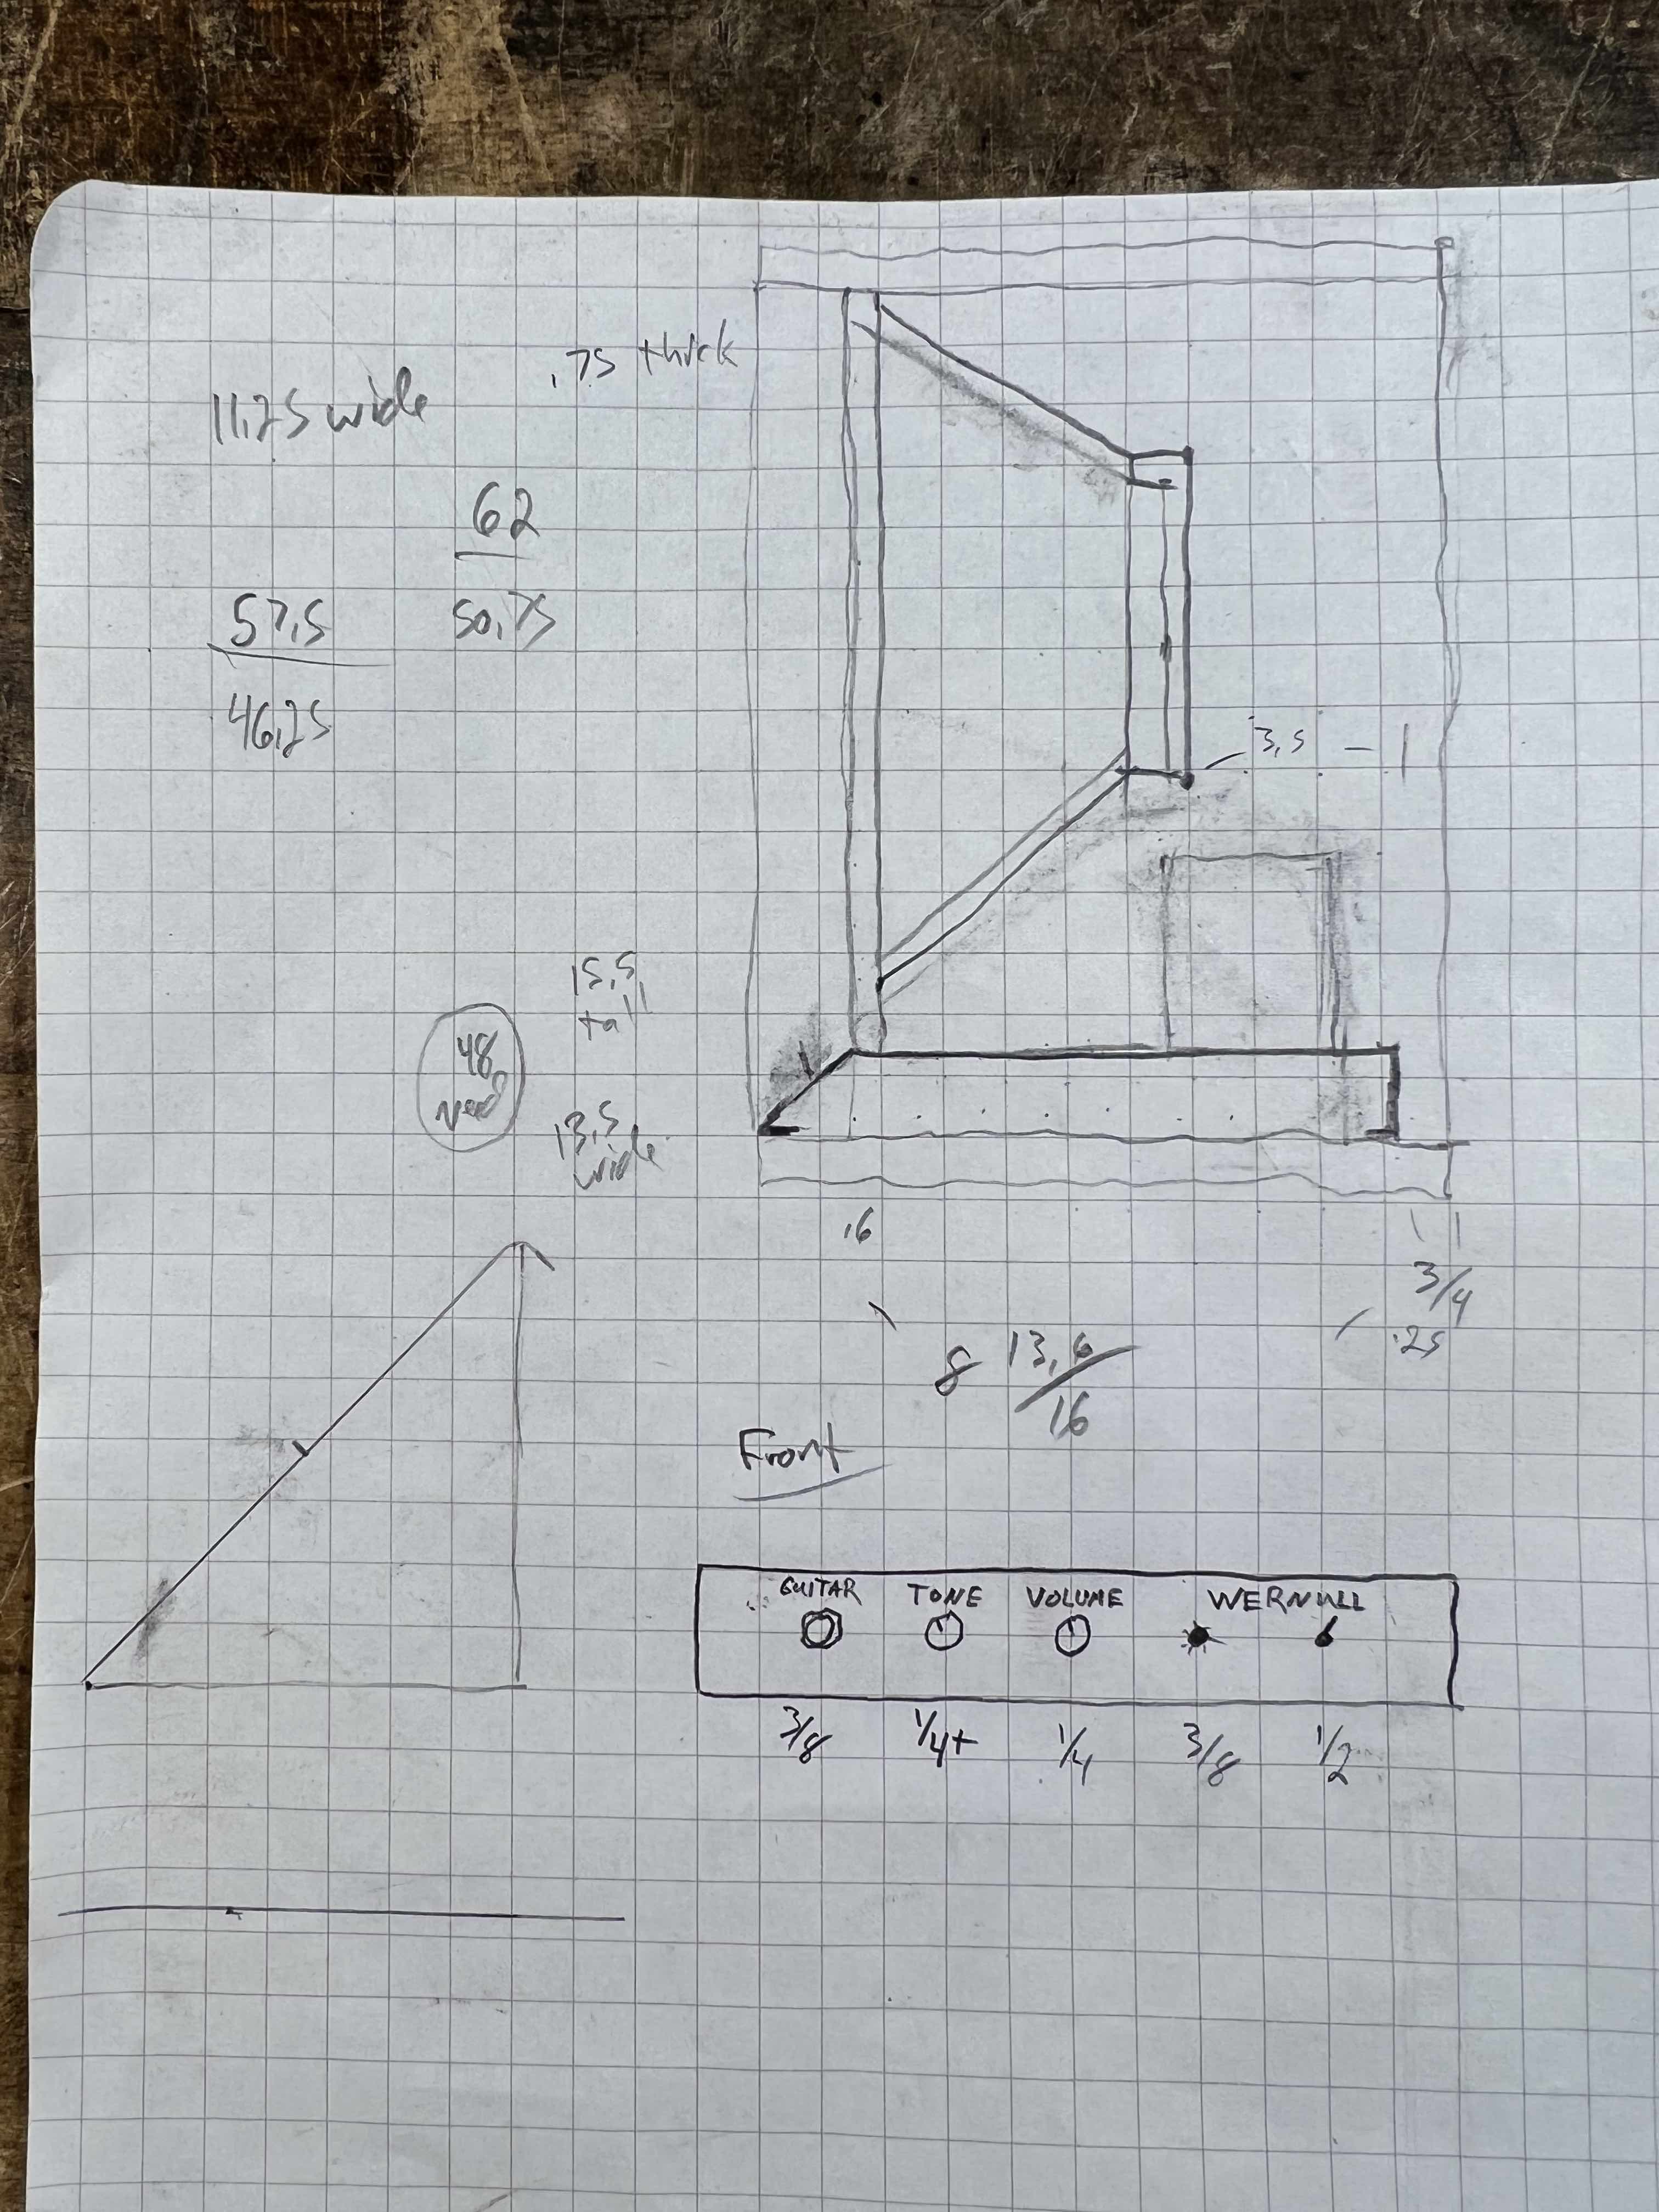 .75 thick
11.25 wide
62
57.5
50.75
46.25
3,5 - 1
15.5
tall
48
need
13.5
wide
.6
3/4
.25
8 13,6/16
Front
GUITAR TONE VOLUME WERNULL
3/8 1/4+ 1/4 3/8 1/2